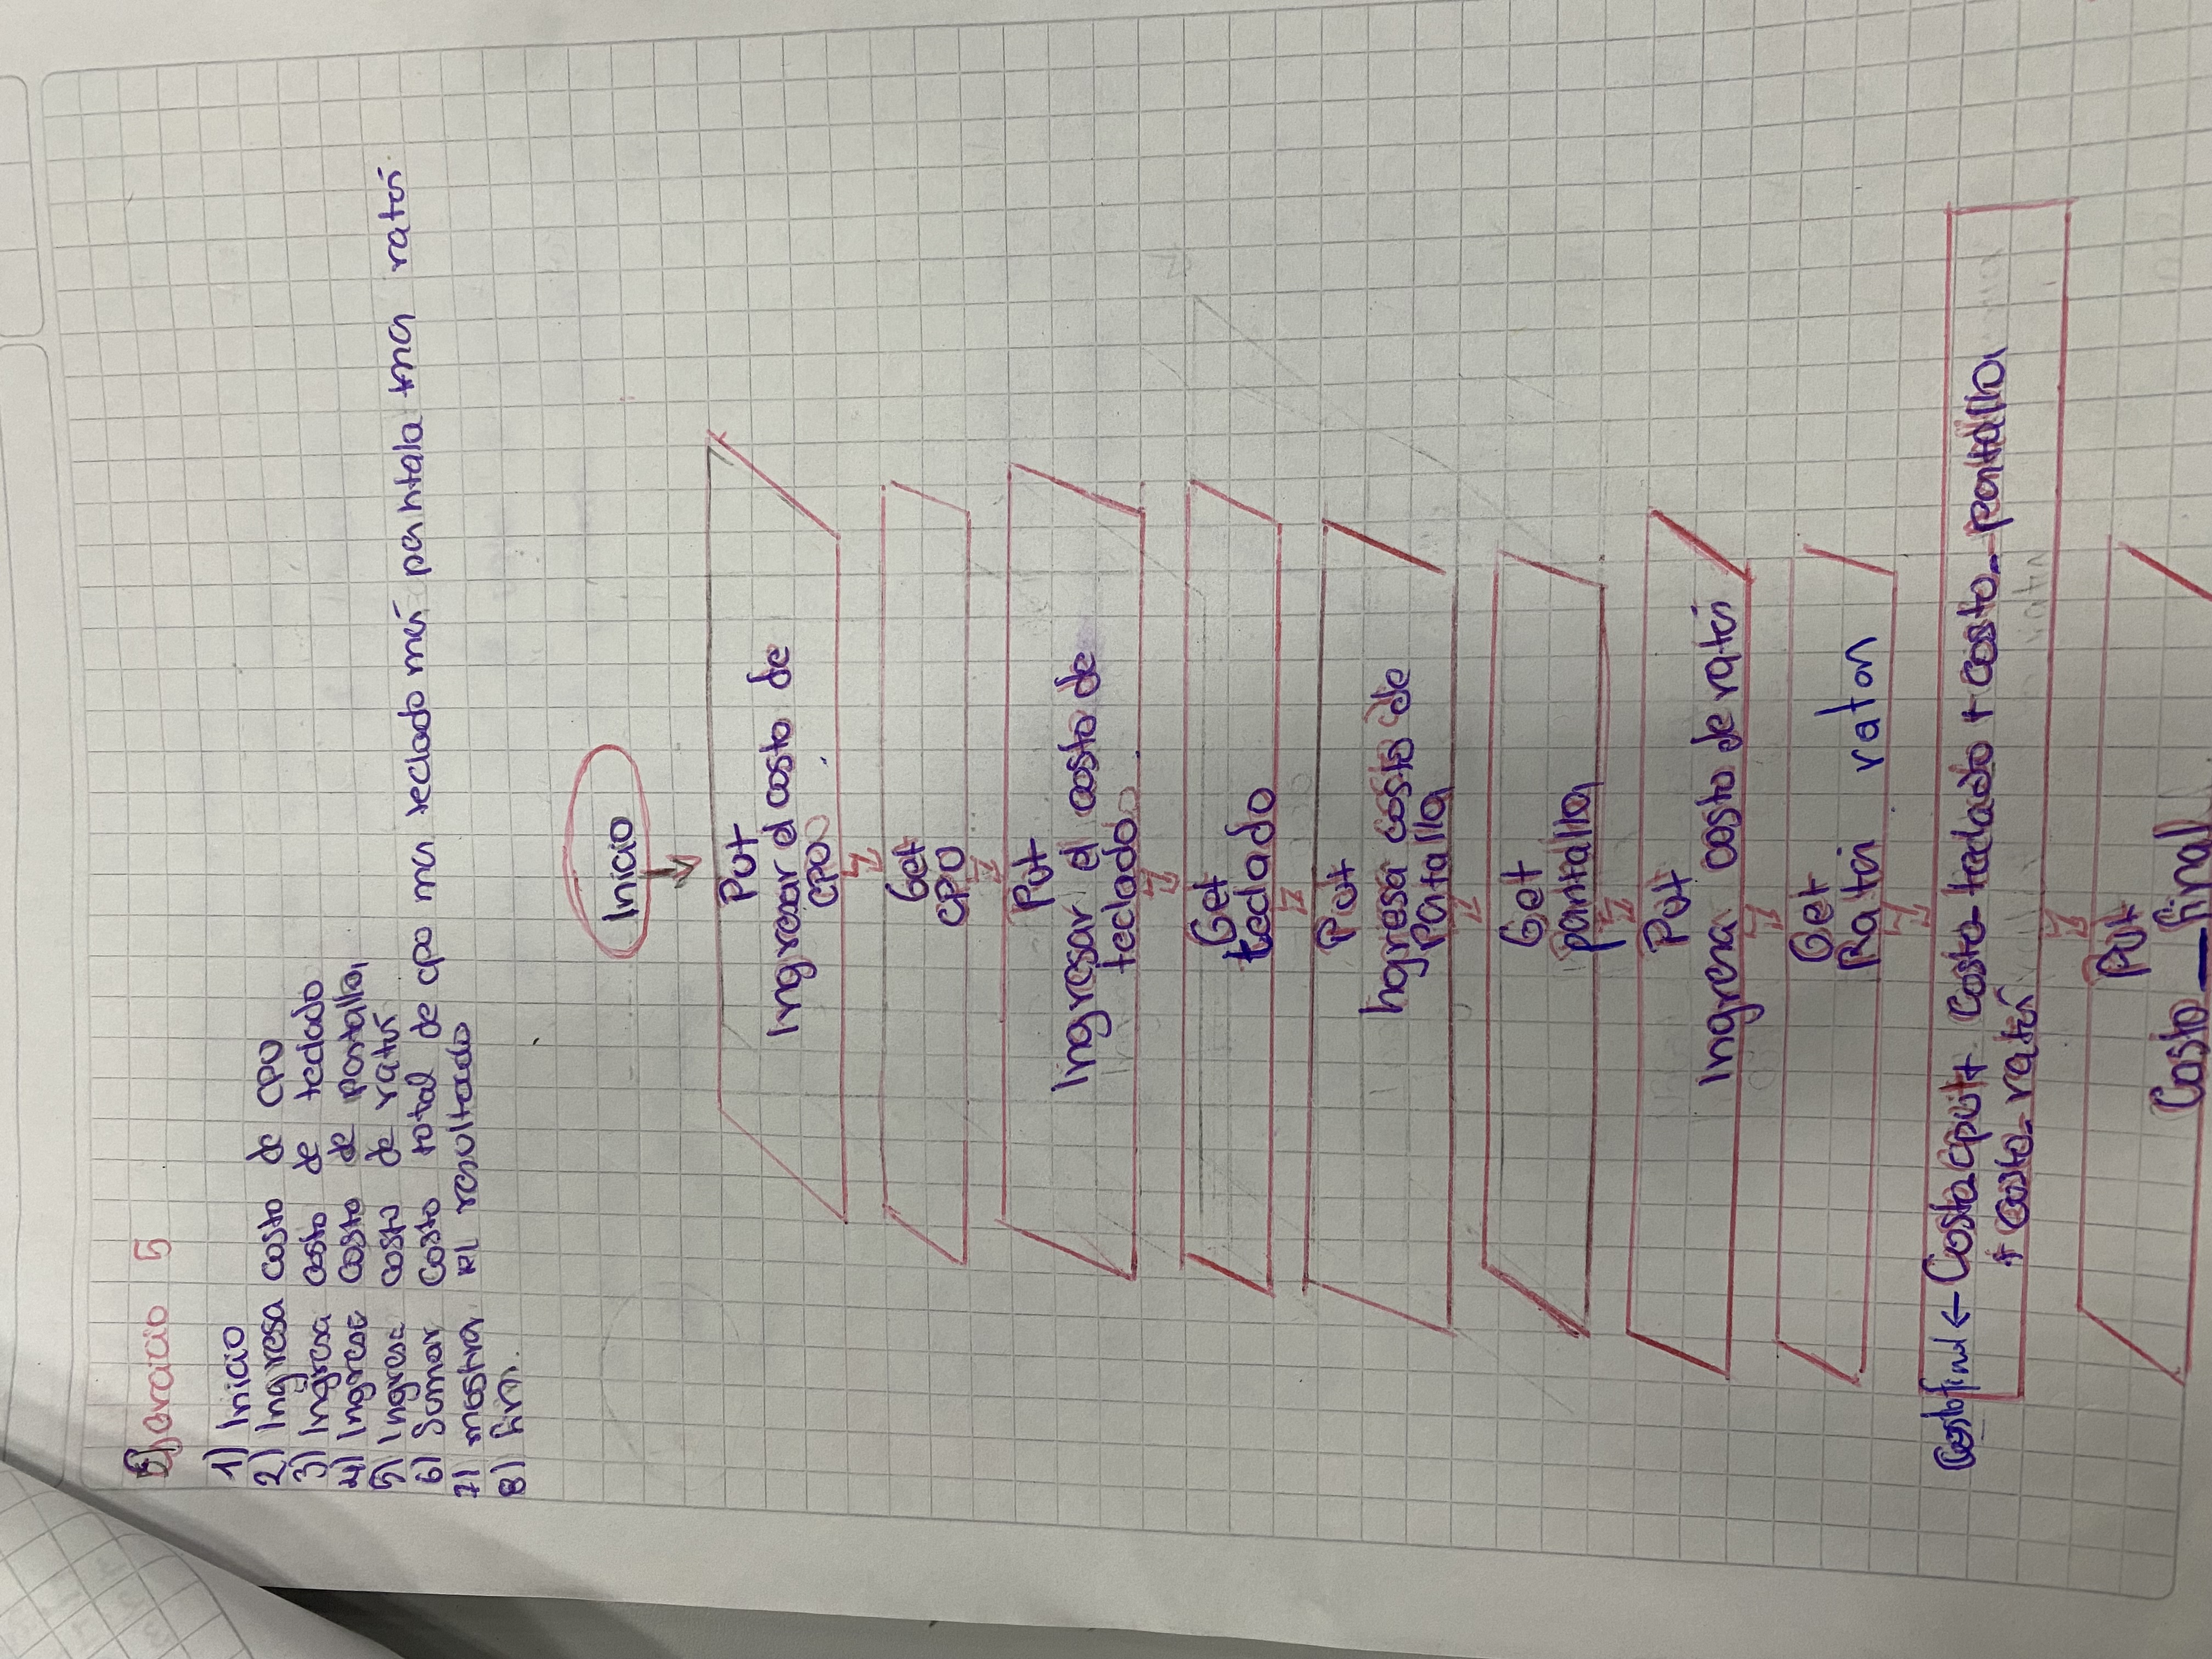 Ejercicio 5
1) Inicio
2) Ingresa costo de CPU
3) Ingresa costo de teclado
4) Ingresa costo de pantalla
5) Ingresa costo de ratón
6) Sumar costo total de cpu ma teclado más pantala ma ratón
7) mostra el resultado
8) fin.
Inicio
Put
Ingresar el costo de
CPU
Get
CPU
Put
Ingresar el costo de
teclado
Get
teclado
Put
Ingresa costo de
Patalla
Get
pantalla
Put
Ingresa costo de ratón
Get
Ratón raton
Costo final ← Costo_cpu + Costo_teclado + costo_pantalla
+ costo_ratón
Put
Costo_final